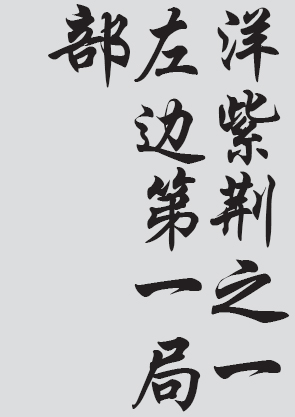 洋紫荆之一
左边第一局
部